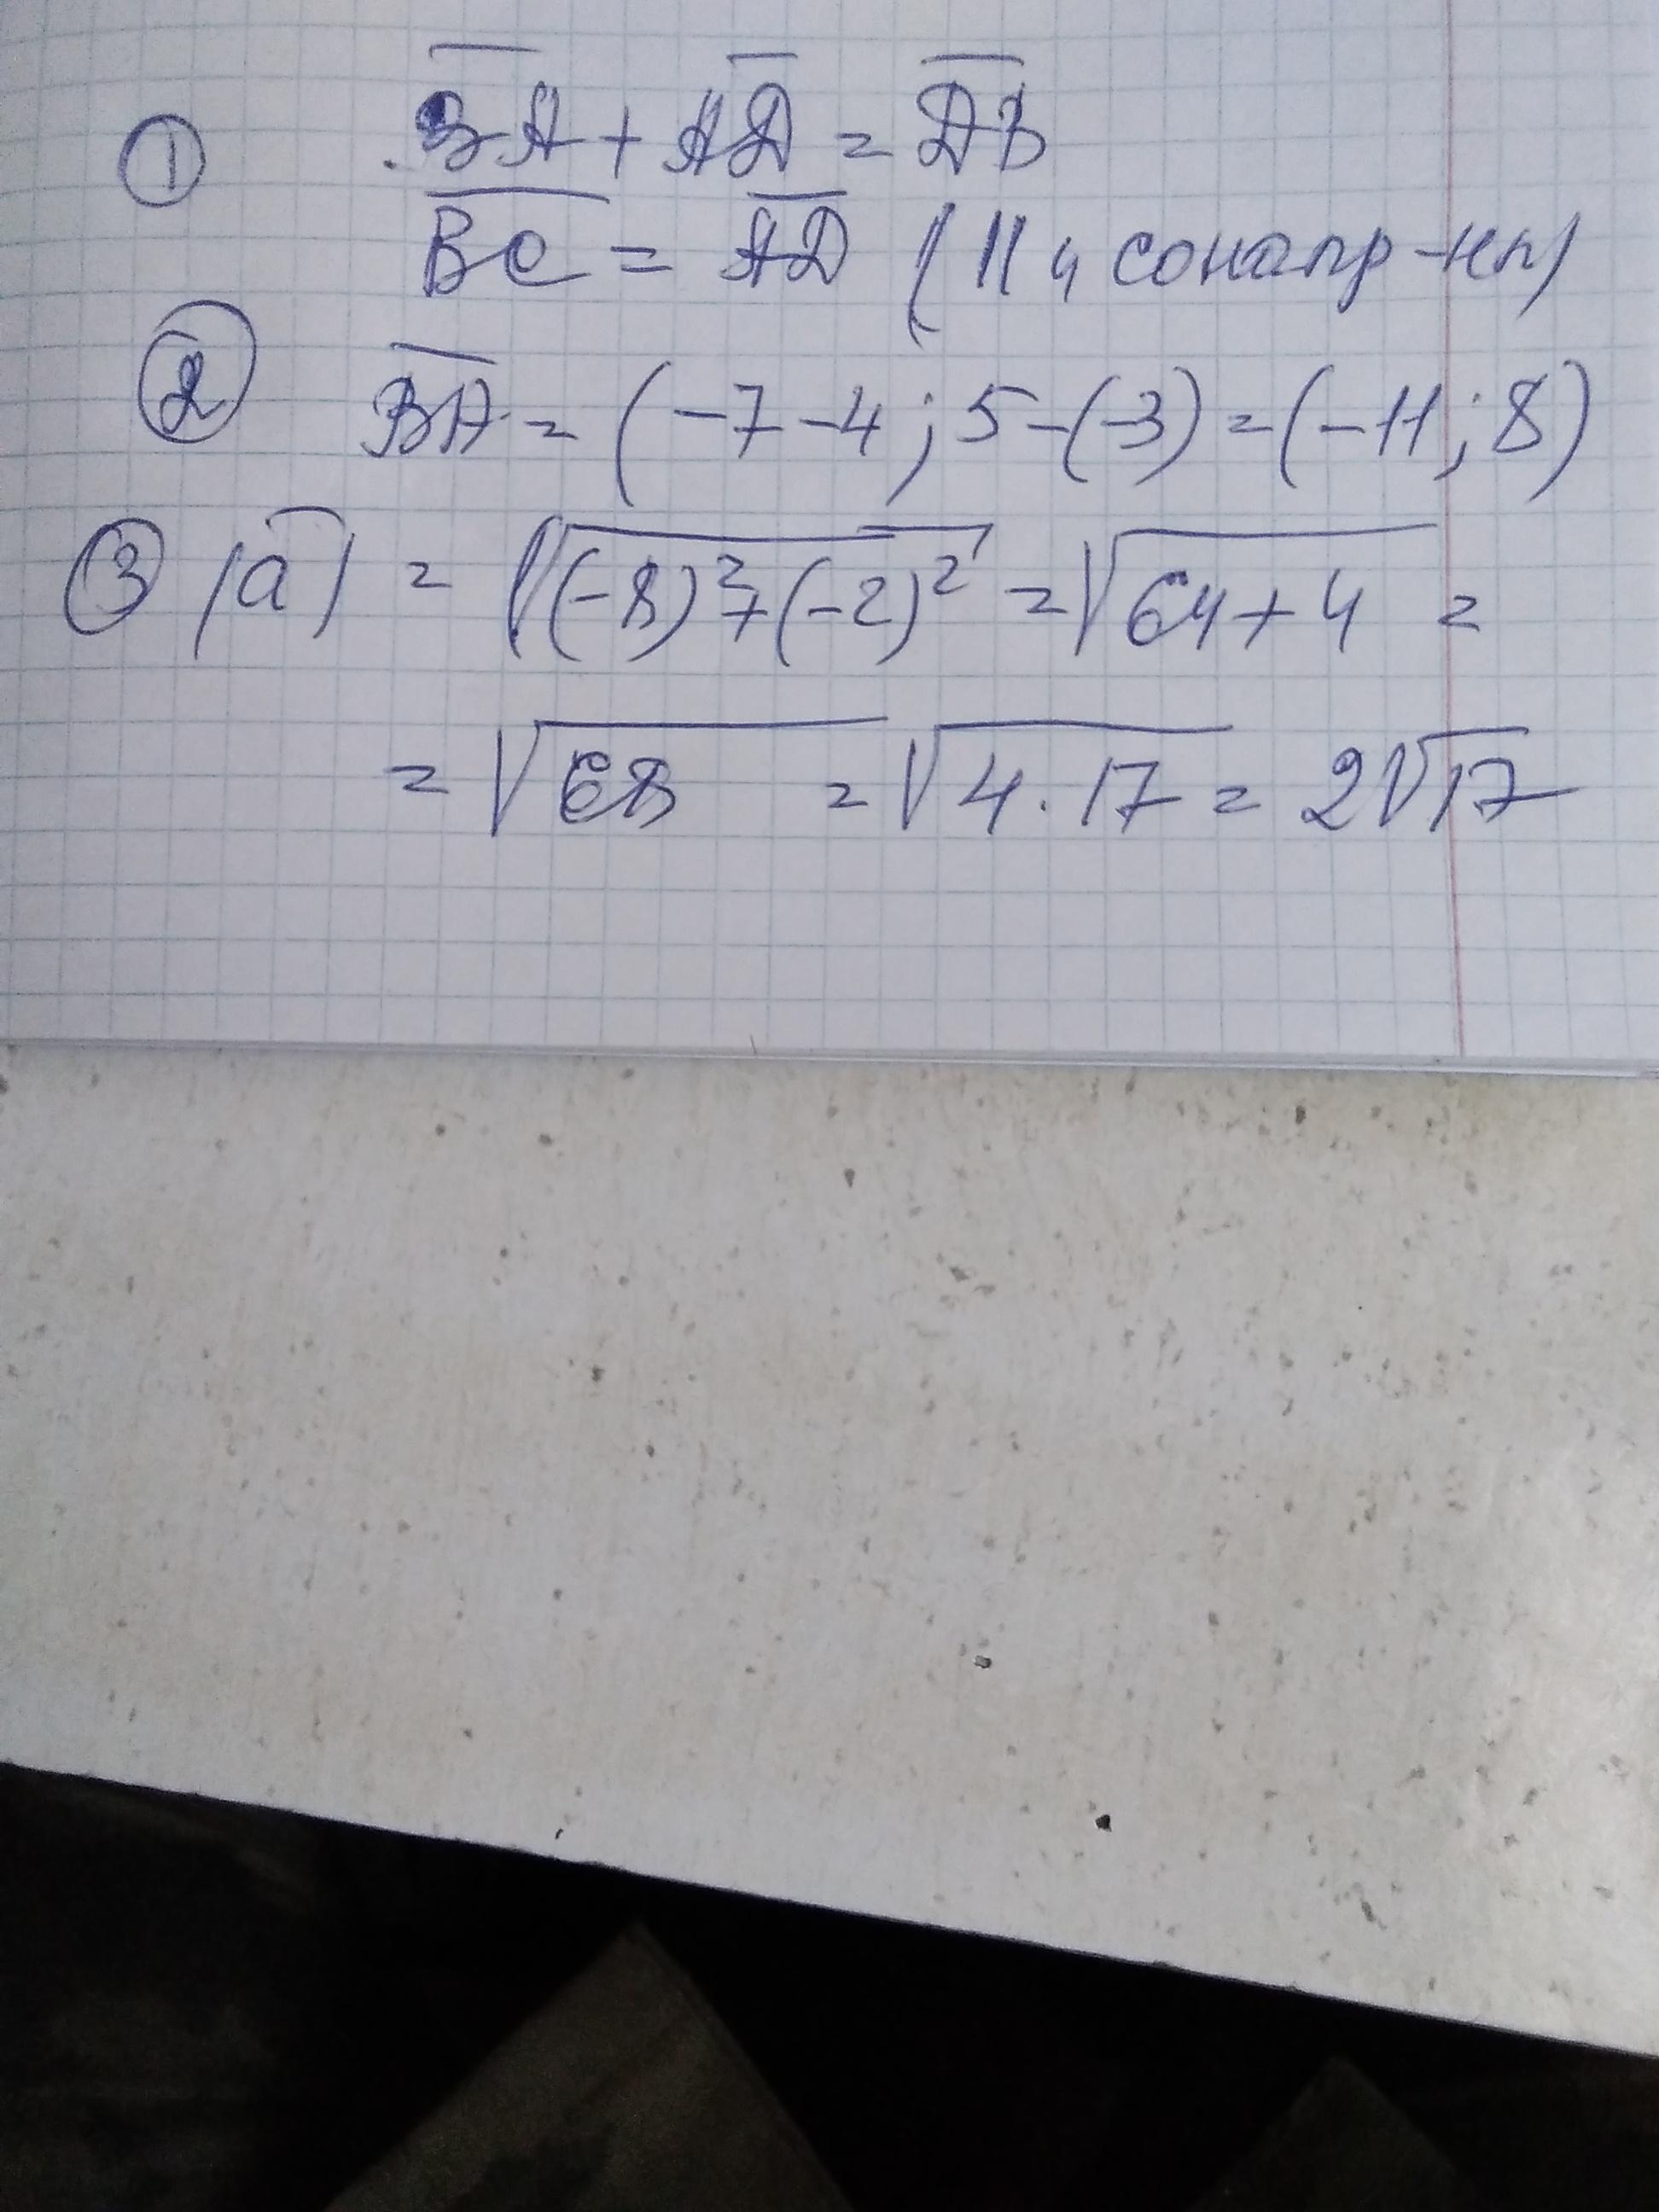 ① BA + AD = DB
BC = AD (|| и сонапр-ны)
② BA = (-7-4; 5-(-3) = (-11; 8)
③ |a| = √(-8)²+(-2)² = √64+4 =
= √68 = √4·17 = 2√17